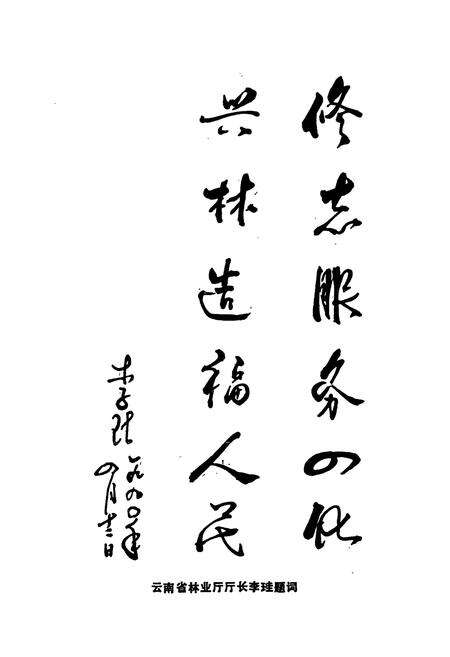 修志服务四化
兴林造福人民
李珪 一九九〇年
四月十日
云南省林业厅厅长李珪题词